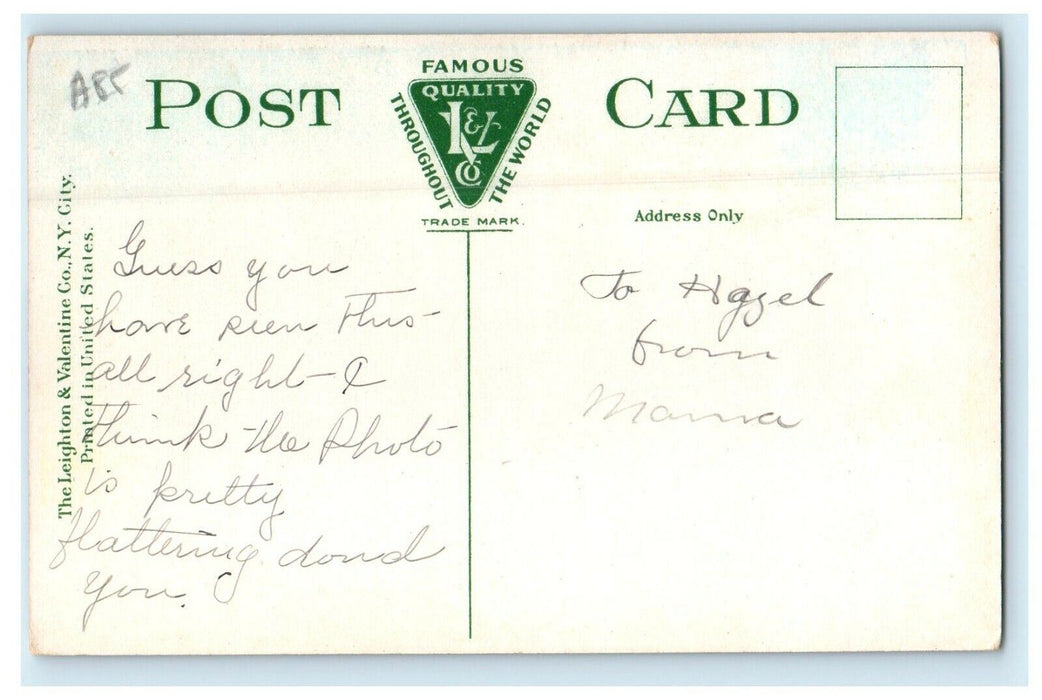 ART
POST CARD
FAMOUS
QUALITY
THROUGHOUT
THE WORLD
L & V
Co
TRADE MARK.
Address Only
The Leighton & Valentine Co., N.Y. City.
Printed in United States.
Guess you
have seen this-
all right- I
think the Photo
is pretty
flattering dond
you.
To Hazel
from
Mama